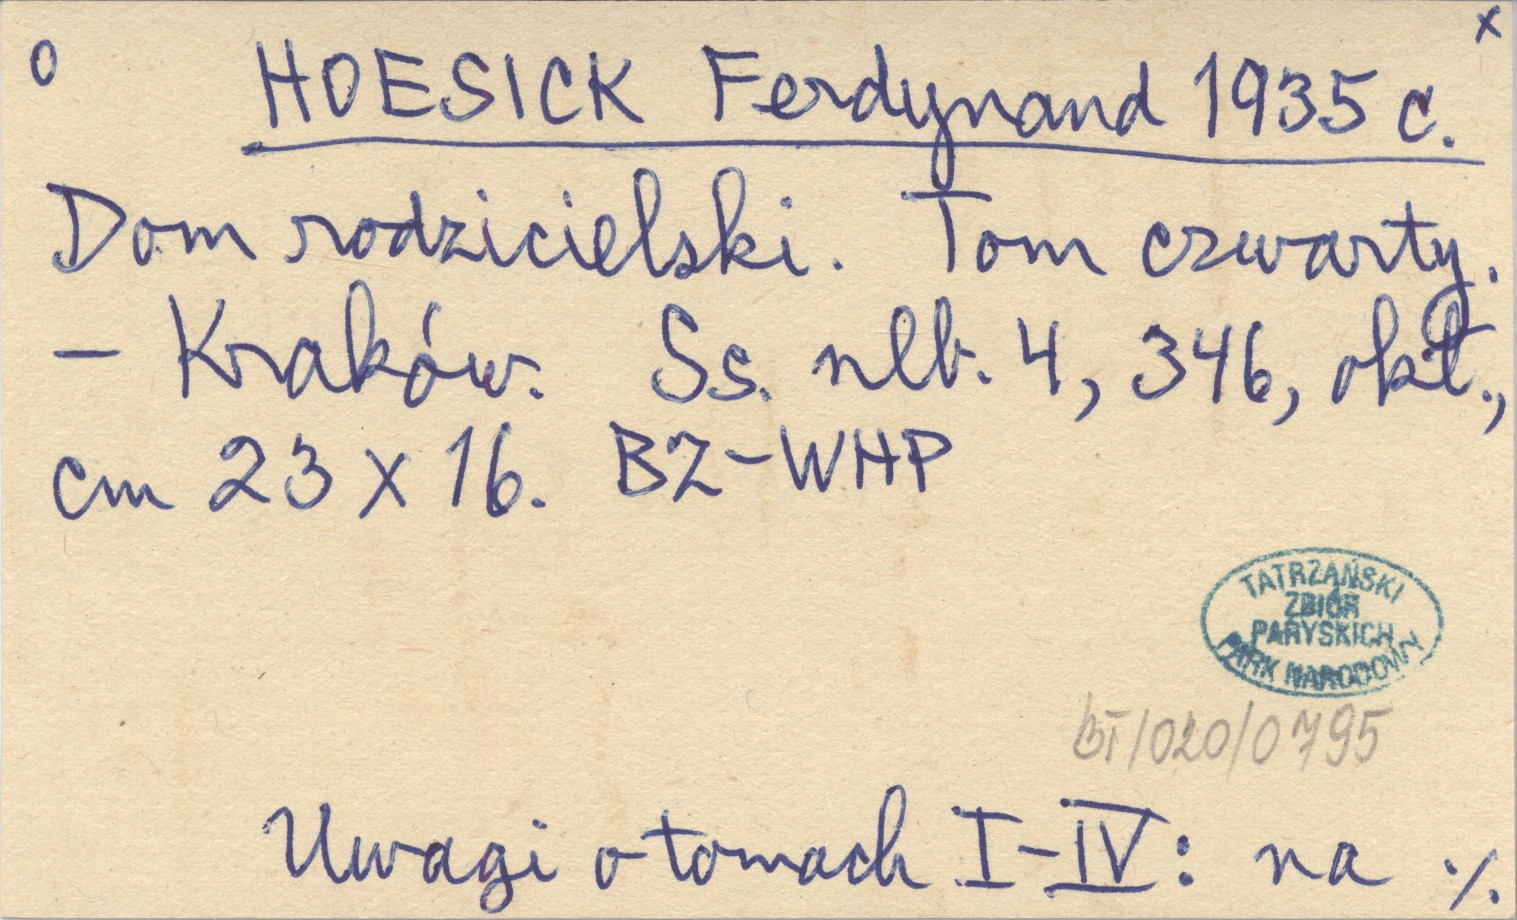 o x
HOESICK Ferdynand 1935 c.
Dom rodzicielski. Tom czwarty.
– Kraków. Ss. nlb. 4, 346, okł.,
cm 23 x 16. BZ-WHP
TATRZAŃSKI
ZBIÓR
PARYSKICH
PARK NARODOWY
BT/020/0795
Uwagi o tomach I-IV: na ./.